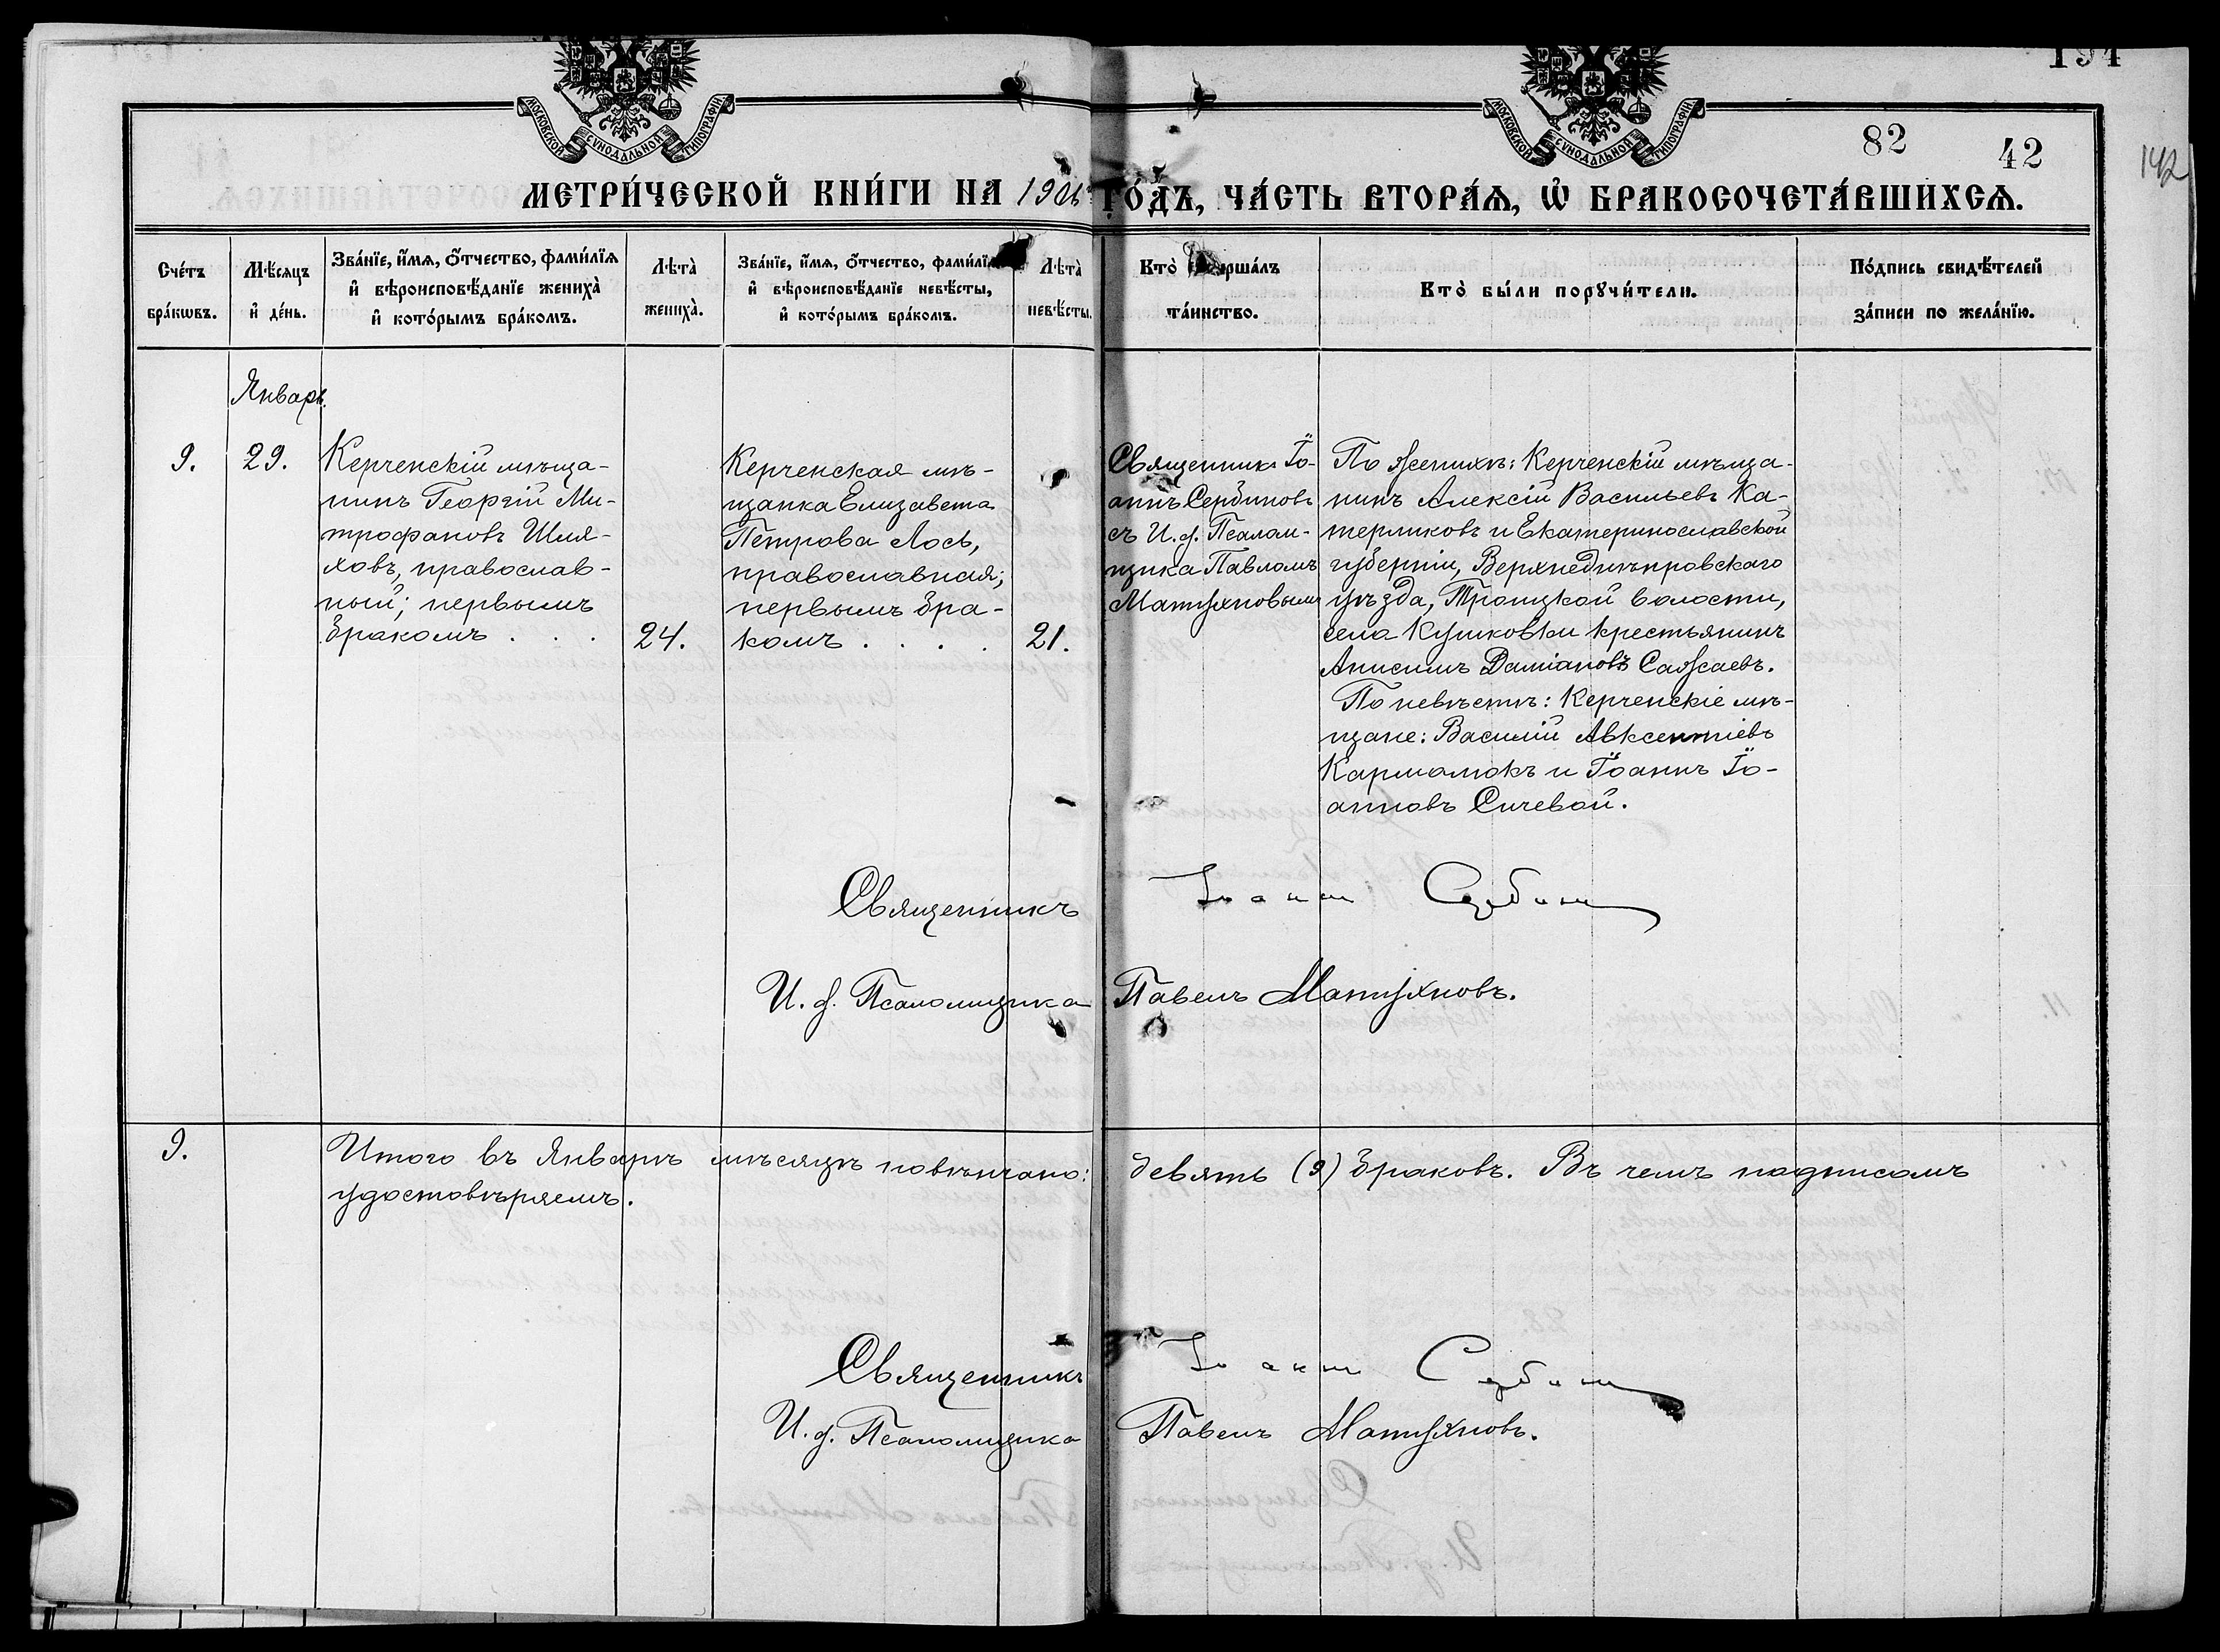 МОСКОВСКОЙ СѴНОДАЛЬНОЙ ТИПОГРАФІИ
МОСКОВСКОЙ СѴНОДАЛЬНОЙ ТИПОГРАФІИ
194
82
42
142
МЕТРИ́ЧЕСКОЙ КНИ́ГИ НА ГО́ДЪ, ЧА́СТЬ ВТОРА́Ѧ, Ѡ҆ БРАКОСОЧЕТА́ВШИХСѦ.
Сче́тъ
бра́кѡвъ.
Мѣ́сѧцъ
и҆ де́нь.
Зва́нїе, и҆́мѧ, ѻ҆́тчество, фами́лїѧ
и҆ вѣроисповѣ́данїе жениха̀
и҆ кото́рымъ бра́комъ.
Лѣ́та̀
жениха̀.
Зва́нїе, и҆́мѧ, ѻ҆́тчество,
и҆ вѣроисповѣ́данїе невѣ́сты,
и҆ кото́рымъ бра́комъ.
Лѣ́та̀
невѣ́сты.
Кто̀
та́инство.
Кто̀ бы́ли порꙋчи́тели.
По́дпись свидѣ́телей
за́писи по жела́нїю.
Январь.
9.
29.
Керченскій мѣща-
нинъ Георгій Ми-
трофановъ Шля-
ховъ, православ-
ный; первымъ
бракомъ . . .
24.
Керченская мѣ-
щанка Елизавета
Петрова Лось,
православная;
первымъ бра-
комъ . . . .
21.
Священникъ Іо-
аннъ Сербиновъ
съ И. д. Псалом-
щика Павломъ
Матухновымъ
По женихѣ: Керченскій мѣща-
нинъ Алексій Васильевъ Ка-
терликовъ и Екатеринославской
губерніи, Верхнеднѣпровскаго
уѣзда, Троицкой волости,
села Кушковки крестьянинъ
Анисимъ Даміановъ Сажаевъ.
По невѣстѣ: Керченскіе мѣ-
щане: Василій Авксентіевъ
Кармалюкъ и Іоаннъ Іо-
анновъ Сичевой.
Священникъ Іоаннъ Сербинов
И. д. Псаломщика Павелъ Матухновъ.
9.
Итого въ Январѣ мѣсяцѣ повѣнчано: девять (9) браковъ. Въ чемъ подписомъ
удостовѣряемъ.
Священникъ Іоаннъ Сербинов
И. д. Псаломщика Павелъ Матухновъ.